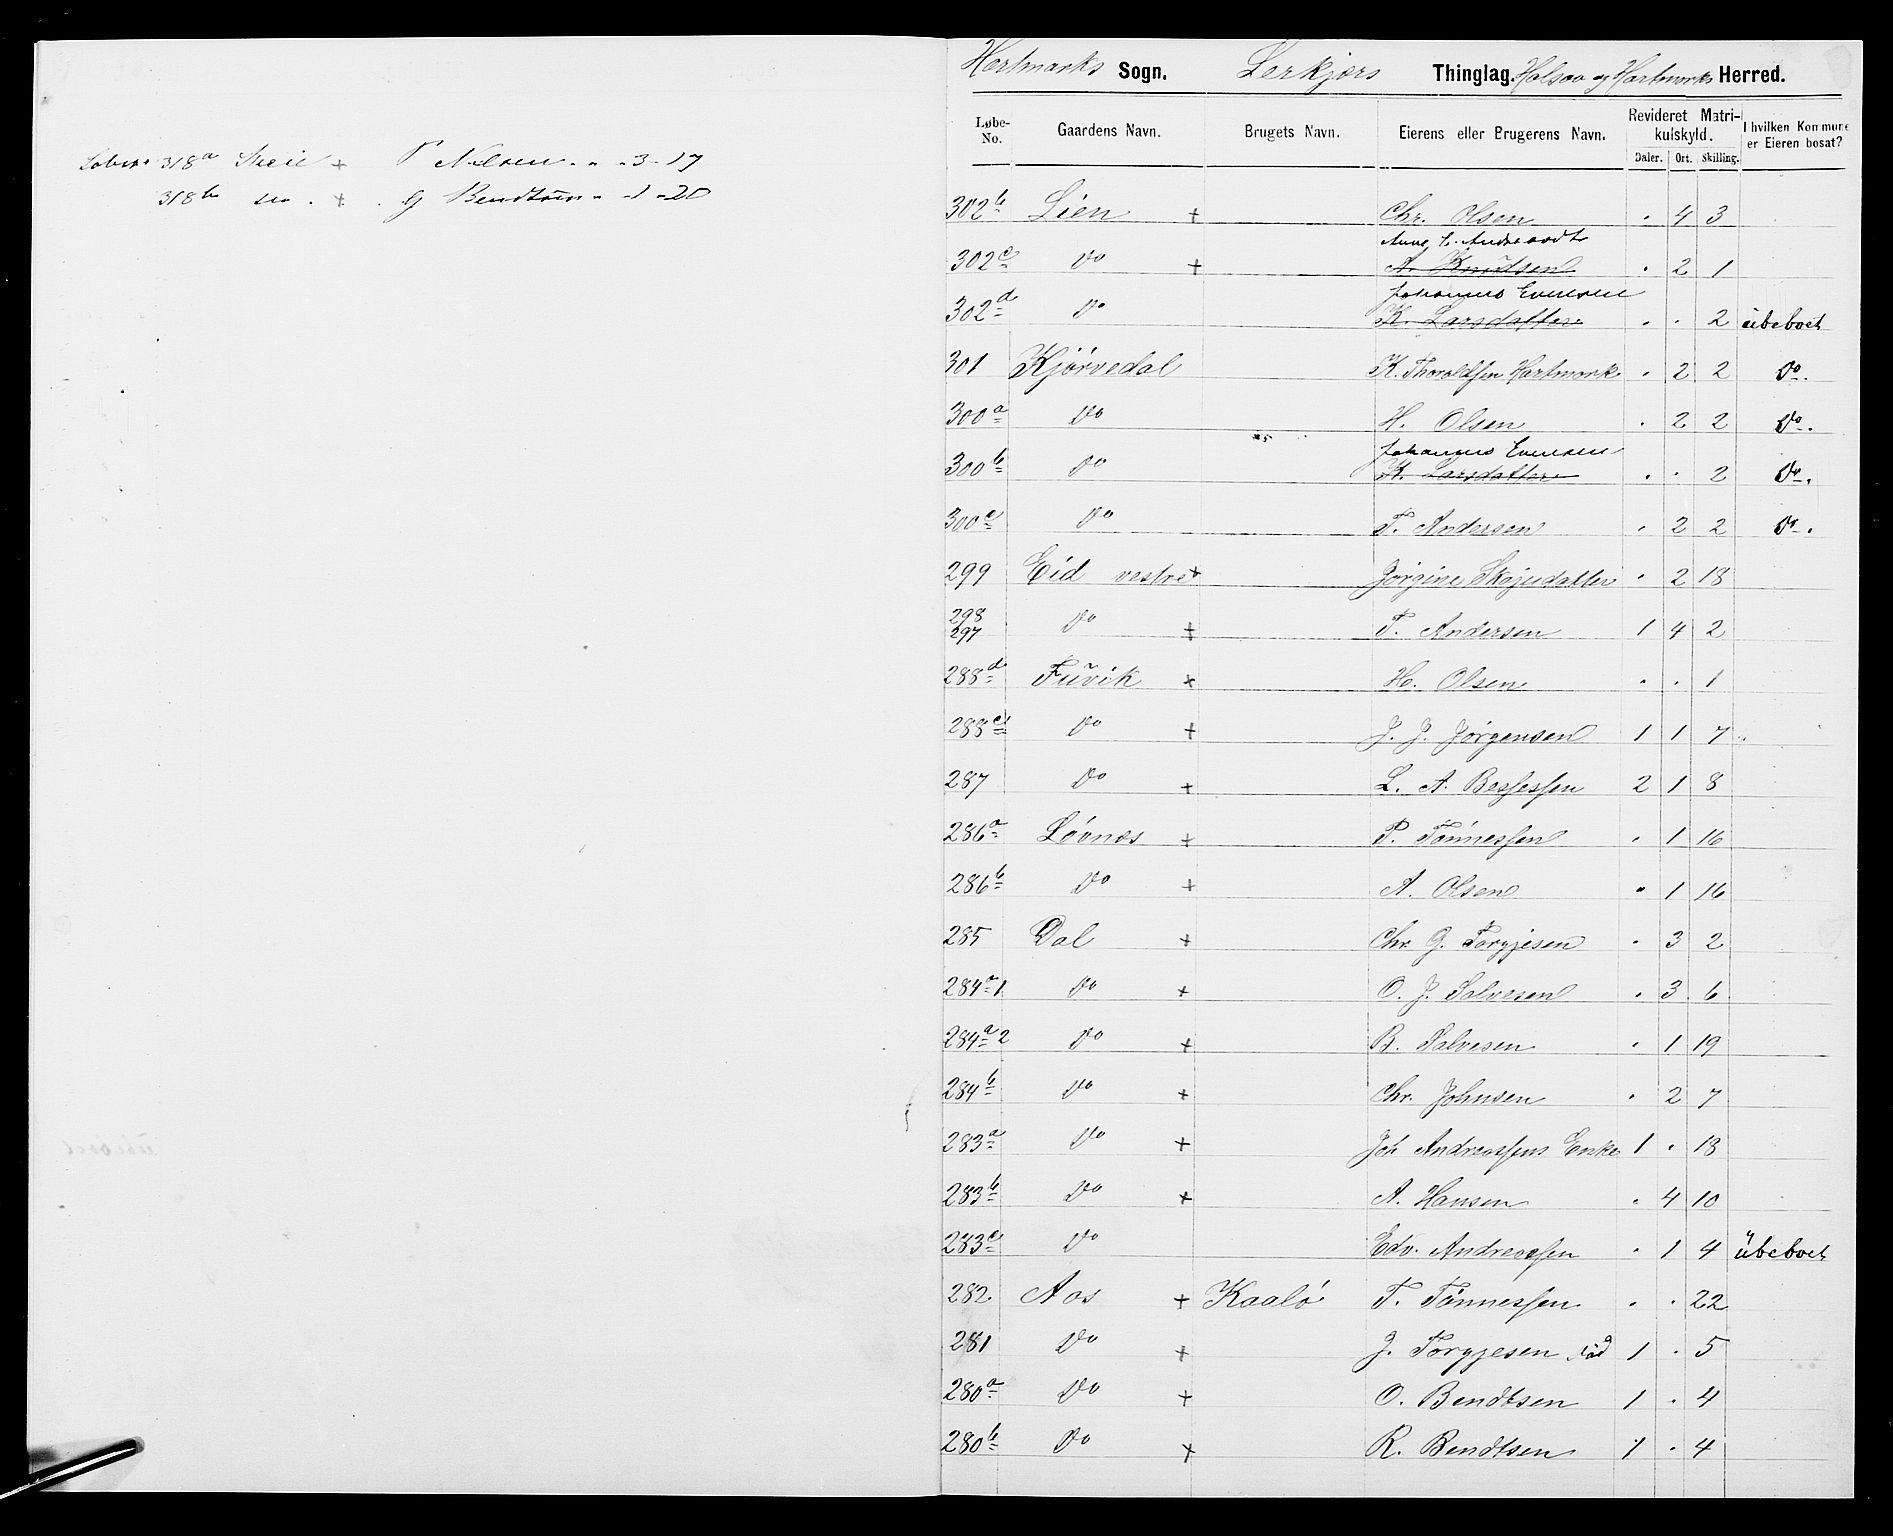 Løbeno 318a Skeie + P Nilsen " " 3 - 17
318b do . + . G Bendtsen " - 1 - 20
Hartmarks Sogn. Lerkjærs Thinglag. Halsaa og Hartmarks Herred.
Løbe-No. Gaardens Navn. Brugets Navn. Eierens eller Brugerens Navn. Revideret Matrikulskyld. I hvilken Kommune er Eieren bosat?
Daler. Ort. Skilling.
302b Lien + Chr. Olsen " 4 3
302c Do + A. Knudsen " 2 1
Johannes Evensen
302d Do K. Larsdatter " " 2 ubeboet
301 Kjørvedal K. Thoroldsen Hartmark " 2 2 Do.
300a Do H. Olsen " 2 2 Do.
Johannes Evensen
300b Do K. Larsdatter " " 2 Do.
300c Do T. Andersen " 2 2 Do.
299 Eid vestre + Jørgine " 2 18
298
297 Do + T. Andersen 1 4 2
288d Fuvik + H. Olsen " " 1
288c Do + J. J. Jørgensen 1 1 7
287 Do + L. A. Bessessen 2 1 8
286a Løvnes + P. Tønnessen " 1 16
286b Do + A. Olsen " 1 16
285 Dal + Chr. G. Torgjesen " 3 2
284a1 Do + O. J. Salvesen " 3 6
284a2 Do + B. Salvesen " 1 19
284b Do + Chr. Johnsen " 2 7
283a Do + Joh Andreassens Enke 1 " 18
283b Do + A. Hansen " 4 10
283c Do Edv. Andreassen " 1 4 ubeboet
282 Aas + Kaalø T. Tønnessen " " 22
281 Do + J. Torgjesen 1 " 5
280a Do + O. Bendtsen 1 " 4
280b Do + R. Bendtsen 1 " 4